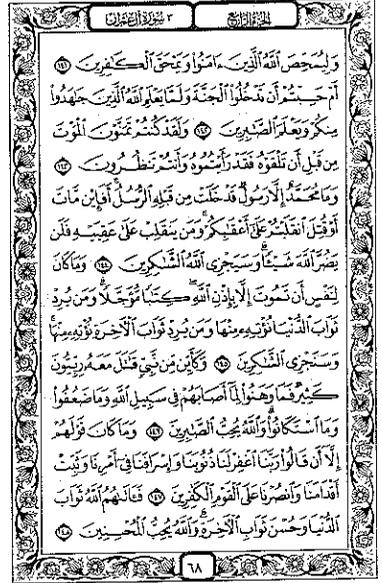 الجزء الرابع ٣ سورة آل عمران
وَلِيُمَحِّصَ ٱللَّهُ ٱلَّذِينَ ءَامَنُوا۟ وَيَمْحَقَ ٱلْكَـٰفِرِينَ ١٤١
أَمْ حَسِبْتُمْ أَن تَدْخُلُوا۟ ٱلْجَنَّةَ وَلَمَّا يَعْلَمِ ٱللَّهُ ٱلَّذِينَ جَـٰهَدُوا۟
مِنكُمْ وَيَعْلَمَ ٱلصَّـٰبِرِينَ ١٤٢ وَلَقَدْ كُنتُمْ تَمَنَّوْنَ ٱلْمَوْتَ
مِن قَبْلِ أَن تَلْقَوْهُ فَقَدْ رَأَيْتُمُوهُ وَأَنتُمْ تَنظُرُونَ ١٤٣
وَمَا مُحَمَّدٌ إِلَّا رَسُولٌ قَدْ خَلَتْ مِن قَبْلِهِ ٱلرُّسُلُ أَفَإِي۟ن مَّاتَ
أَوْ قُتِلَ ٱنقَلَبْتُمْ عَلَىٰٓ أَعْقَـٰبِكُمْ وَمَن يَنقَلِبْ عَلَىٰ عَقِبَيْهِ فَلَن
يَضُرَّ ٱللَّهَ شَيْـًٔا وَسَيَجْزِى ٱللَّهُ ٱلشَّـٰكِرِينَ ١٤٤ وَمَا كَانَ
لِنَفْسٍ أَن تَمُوتَ إِلَّا بِإِذْنِ ٱللَّهِ كِتَـٰبًا مُّؤَجَّلًا وَمَن يُرِدْ
ثَوَابَ ٱلدُّنْيَا نُؤْتِهِۦ مِنْهَا وَمَن يُرِدْ ثَوَابَ ٱلْـَٔاخِرَةِ نُؤْتِهِۦ مِنْهَا
وَسَنَجْزِى ٱلشَّـٰكِرِينَ ١٤٥ وَكَأَيِّن مِّن نَّبِىٍّ قَـٰتَلَ مَعَهُۥ رِبِّيُّونَ
كَثِيرٌ فَمَا وَهَنُوا۟ لِمَآ أَصَابَهُمْ فِى سَبِيلِ ٱللَّهِ وَمَا ضَعُفُوا۟
وَمَا ٱسْتَكَانُوا۟ وَٱللَّهُ يُحِبُّ ٱلصَّـٰبِرِينَ ١٤٦ وَمَا كَانَ قَوْلَهُمْ
إِلَّآ أَن قَالُوا۟ رَبَّنَا ٱغْفِرْ لَنَا ذُنُوبَنَا وَإِسْرَافَنَا فِىٓ أَمْرِنَا وَثَبِّتْ
أَقْدَامَنَا وَٱنصُرْنَا عَلَى ٱلْقَوْمِ ٱلْكَـٰفِرِينَ ١٤٧ فَـَٔاتَىٰهُمُ ٱللَّهُ ثَوَابَ
ٱلدُّنْيَا وَحُسْنَ ثَوَابِ ٱلْـَٔاخِرَةِ وَٱللَّهُ يُحِبُّ ٱلْمُحْسِنِينَ ١٤٨
٦٨